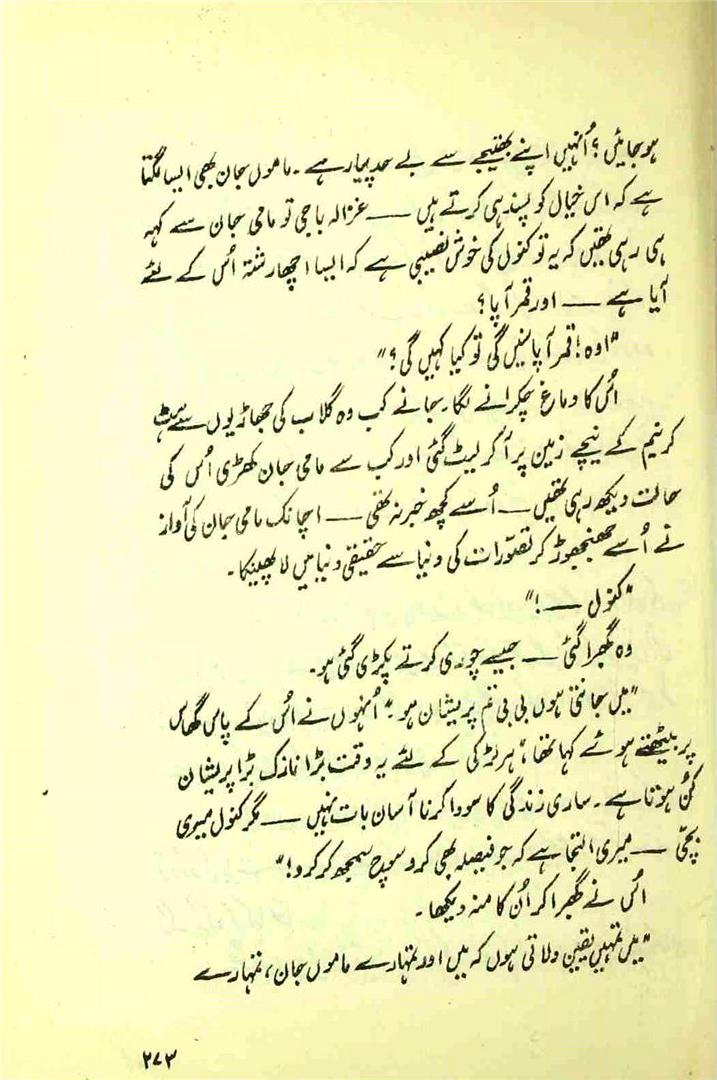 ہو جائیں؟ اُنہیں اپنے بھتیجے سے بے حد پیار ہے۔ ماموں جان بھی ایسا لگتا
ہے کہ اس خیال کو پسند ہی کرتے ہیں ــــ غزالہ باجی تو مامی جان سے کہہ
ہی رہی تھیں کہ یہ تو کنول کی خوش نصیبی ہے کہ ایسا اچھا رشتہ اُس کے لئے
آیا ہے ــــ اور قمر آپا؟
"اوہ! قمر آپا سنیں گی تو کیا کہیں گی؟"
اُس کا دماغ چکرانے لگا۔ جانے کب وہ گلاب کی جھاڑیوں سے ہٹ
کر نیم کے نیچے زمین پر آ کر لیٹ گئی اور کب سے مامی جان کھڑی اُس کی
حالت دیکھ رہی تھیں ــــ اُسے کچھ خبر نہ تھی ــــ اچانک مامی جان کی آواز
نے اُسے جھنجھوڑ کر تصوّرات کی دنیا سے حقیقی دنیا میں لا پھینکا۔
"کنول ــــ!"
وہ گھبرا گئی ــــ جیسے چوری کرتے پکڑی گئی ہو۔
"میں جانتی ہوں بی بی تم پریشان ہو" اُنہوں نے اُس کے پاس گھاس
پر بیٹھتے ہوئے کہا تھا، "ہر لڑکی کے لئے یہ وقت بڑا نازک بڑا پریشان
کُن ہوتا ہے۔ ساری زندگی کا سودا کرنا آسان بات نہیں ــــ مگر کنول میری
بچّی ــــ میری التجا ہے کہ جو فیصلہ بھی کرو سوچ سمجھ کر کرو!"
اُس نے گھبرا کر اُن کا منہ دیکھا۔
"میں تمہیں یقین دلاتی ہوں کہ میں اور تمہارے ماموں جان، تمہارے
۲۷۳